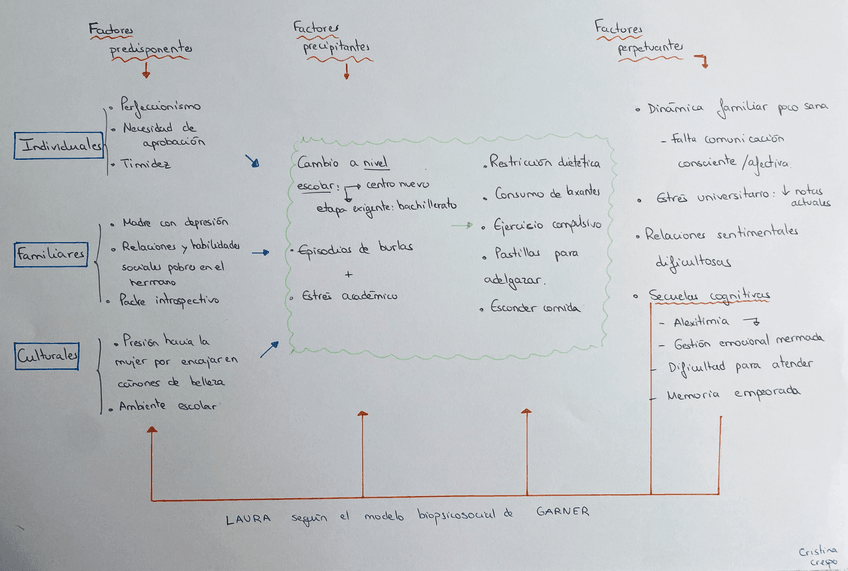 Factores
predisponentes
Factores
precipitantes
Factores
perpetuantes
Individuales
• Perfeccionismo
• Necesidad de
aprobación
• Timidez
Familiares
• Madre con depresión
• Relaciones y habilidades
sociales pobres en el
hermano
• Padre introspectivo
Culturales
• Presión hacia la
mujer por encajar en
cánones de belleza
• Ambiente escolar
Cambio a nivel
escolar: → centro nuevo
etapa exigente: bachillerato
• Episodios de burlas
+
• Estrés académico
• Restricción dietética
• Consumo de laxantes
• Ejercicio compulsivo
• Pastillas para
adelgazar.
• Esconder comida
• Dinámica familiar poco sana
- falta comunicación
consciente / afectiva
• Estrés universitario: ↓ notas
actuales
• Relaciones sentimentales
dificultosas
• Secuelas cognitivas
- Alexitimia
- Gestión emocional mermada
- Dificultad para atender
- Memoria empeorada
LAURA según el modelo biopsicosocial de GARNER
Cristina
Crespo